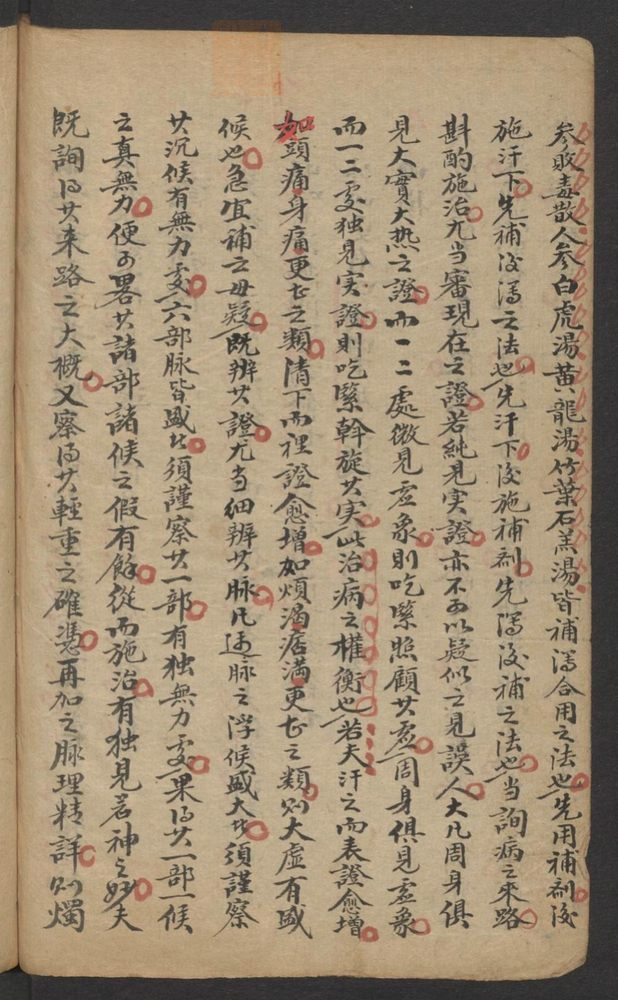 参敗毒散人參白虎湯黄龍湯竹葉石羔湯皆補瀉合用之法也先用補剤後
施汗下先補後瀉之法也先汗下後施補剤先瀉後補之法也当詢病之來路
斟酌施治尤当審現在之證若純見実證亦不可以疑似之見誤人大凡周身俱
見大實大热之證而一二處微見虚象則吃緊照顧其虚周身俱見虚象
而一二处独見実證則吃緊斡旋其实此治病之權衡也若夫汗之而表證愈增
如頭痛身痛更甚之類清下而裡證愈增如煩渴痞满更甚之類則大虚有盛
候也急宜補之毋疑既辨其證尤当细辨其脉凡遇脉之浮候盛大者須謹察
其沉候有無力处六部脉皆盛者須謹察其一部有独無力处果得其一部一候
之真無力便可畧其諸部諸候之假有餘從而施治有独見若神之妙夫
既詢得其来路之大概又察得其輕重之確憑再加之脉理精詳則燭